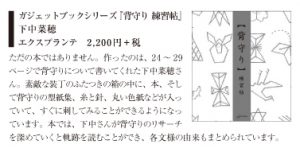 ガジェットブックシリーズ『背守り 練習帖』
下中菜穂
エクスプランテ　2,200円＋税
ただの本ではありません。作ったのは、24〜29
ページで背守りについて書いてくれた下中菜穂さ
ん。素敵な装丁のふたつきの箱の中に、本、そし
て背守りの型紙集、糸と針、丸い色紙などが入っ
ていて、すぐに刺してみることができるようになっ
ています。本では、下中さんが背守りのリサーチ
を深めていくと軌跡を読むことができ、各文様の由来もまとめられています。
【背守り】
練習帖